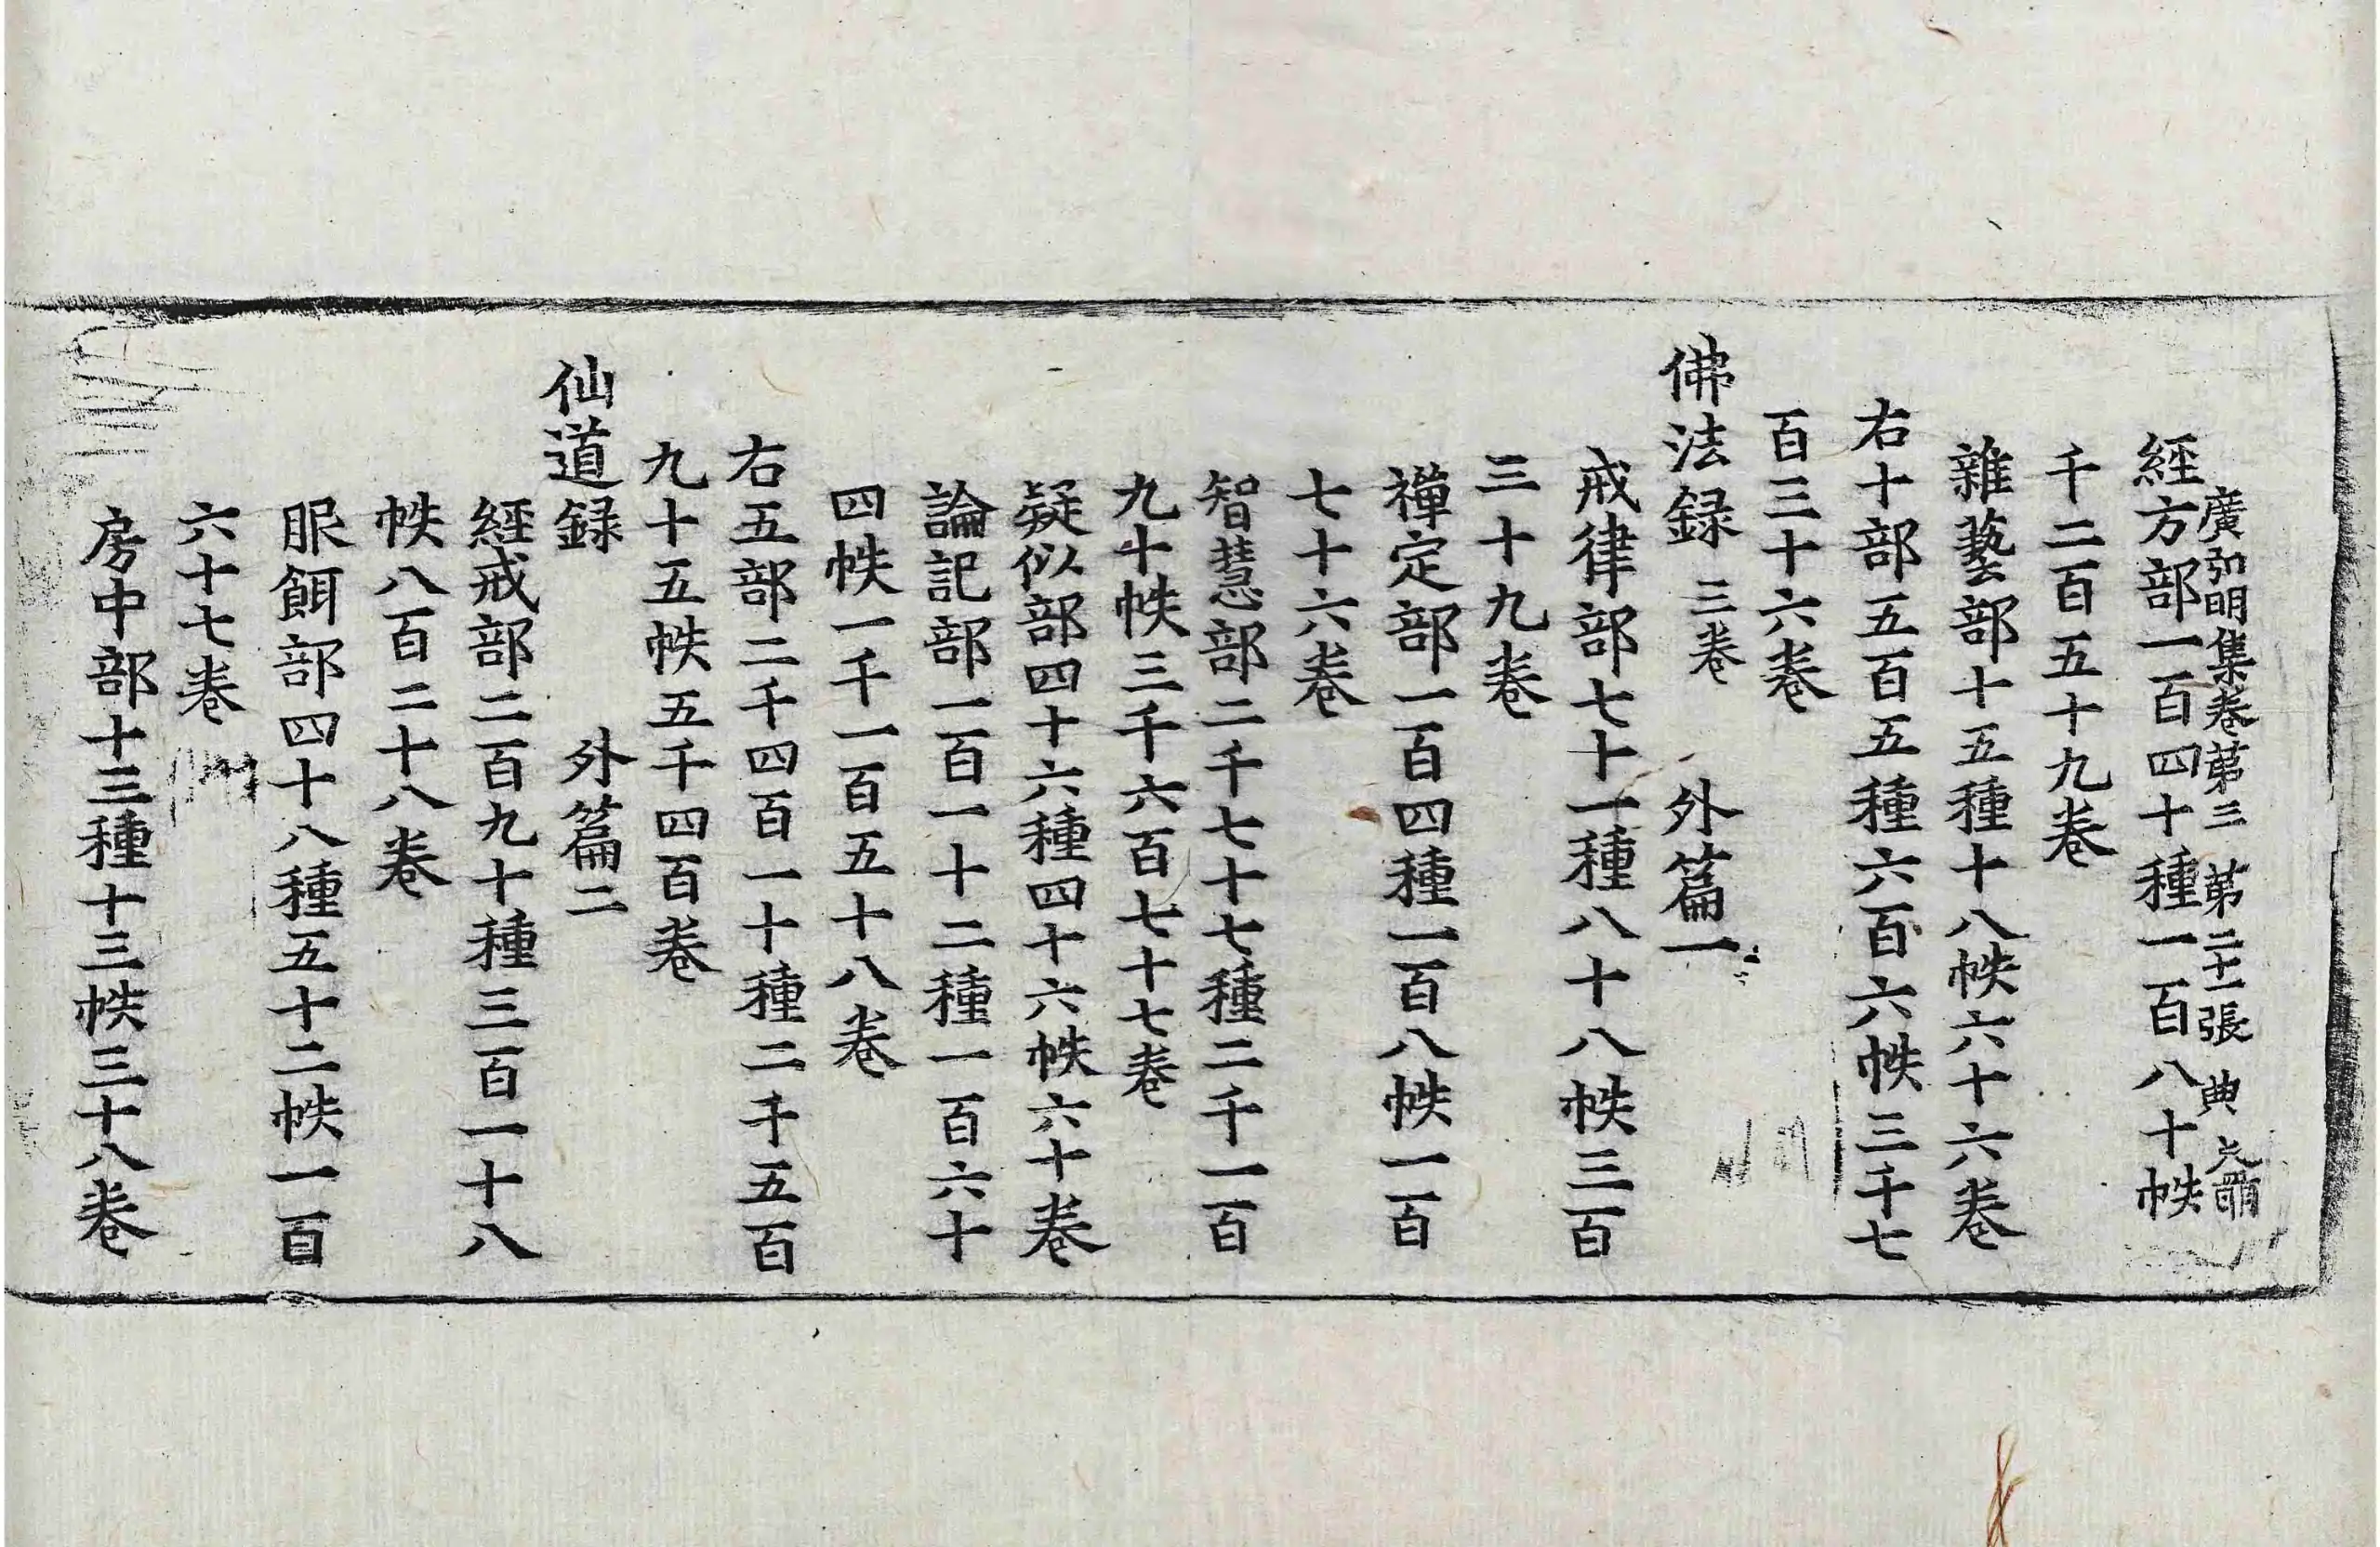 廣弘明集卷第三　第二十一張　典
經方部一百四十種一百八十帙
千二百五十九卷
雜藝部十五種十八帙六十六卷
右十部五百五種六百六帙三千七
百三十六卷
佛法録三卷　外篇一
戒律部七十一種八十八帙三百
三十九卷
禪定部一百四種一百八帙一百
七十六卷
智慧部二千七十七種二千一百
九十帙三千六百七十七卷
疑似部四十六種四十六帙六十卷
論記部一百一十二種一百六十
四帙一千一百五十八卷
右五部二千四百一十種二千五百
九十五帙五千四百卷
仙道録　外篇二
經戒部二百九十種三百一十八
帙八百二十八卷
服餌部四十八種五十二帙一百
六十七卷
房中部十三種十三帙三十八卷